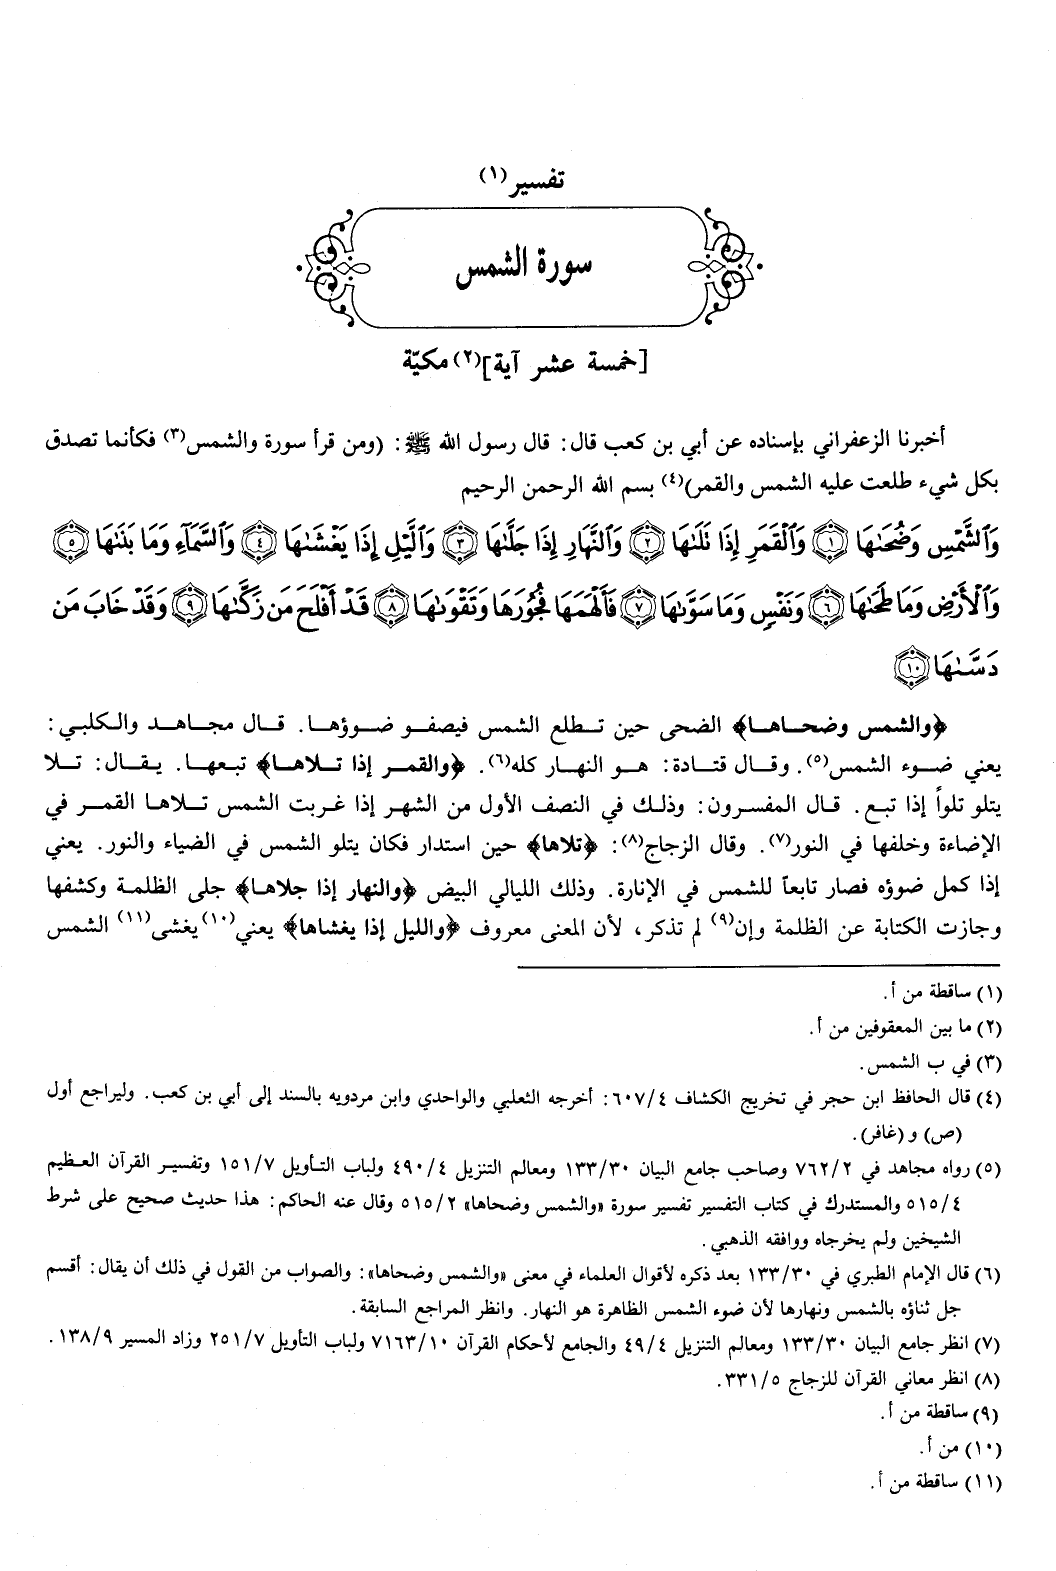 تفسير(١)
سورة الشمس
[خمسة عشر آية](٢) مكيّة
أخبرنا الزعفراني بإسناده عن أبي بن كعب قال: قال رسول الله ﷺ: (ومن قرأ سورة والشمس(٣) فكأنما تصدق
بكل شيء طلعت عليه الشمس والقمر)(٤) بسم الله الرحمن الرحيم
وَٱلشَّمْسِ وَضُحَىٰهَا ١ وَٱلْقَمَرِ إِذَا تَلَىٰهَا ٢ وَٱلنَّهَارِ إِذَا جَلَّىٰهَا ٣ وَٱلَّيْلِ إِذَا يَغْشَىٰهَا ٤ وَٱلسَّمَآءِ وَمَا بَنَىٰهَا ٥
وَٱلْأَرْضِ وَمَا طَحَىٰهَا ٦ وَنَفْسٍ وَمَا سَوَّىٰهَا ٧ فَأَلْهَمَهَا فُجُورَهَا وَتَقْوَىٰهَا ٨ قَدْ أَفْلَحَ مَن زَكَّىٰهَا ٩ وَقَدْ خَابَ مَن
دَسَّىٰهَا ١٠
﴿والشمس وضحاها﴾ الضحى حين تطلع الشمس فيصفو ضوؤها. قال مجاهد والكلبي:
يعني ضوء الشمس(٥). وقال قتادة: هو النهار كله(٦). ﴿والقمر إذا تلاها﴾ تبعها. يقال: تلا
يتلو تلواً إذا تبع. قال المفسرون: وذلك في النصف الأول من الشهر إذا غربت الشمس تلاها القمر في
الإضاءة وخلفها في النور(٧). وقال الزجاج(٨): ﴿تلاها﴾ حين استدار فكان يتلو الشمس في الضياء والنور. يعني
إذا كمل ضوؤه فصار تابعاً للشمس في الإنارة. وذلك الليالي البيض ﴿والنهار إذا جلاها﴾ جلى الظلمة وكشفها
وجازت الكتابة عن الظلمة وإن(٩) لم تذكر، لأن المعنى معروف ﴿والليل إذا يغشاها﴾ يعني(١٠) يغشى(١١) الشمس
(١) ساقطة من أ.
(٢) ما بين المعقوفين من أ.
(٣) في ب الشمس.
(٤) قال الحافظ ابن حجر في تخريج الكشاف ٦٠٧/٤: أخرجه الثعلبي والواحدي وابن مردويه بالسند إلى أبي بن كعب. وليراجع أول
(ص) و (غافر).
(٥) رواه مجاهد في ٧٦٢/٢ وصاحب جامع البيان ١٣٣/٣٠ ومعالم التنزيل ٤٩٠/٤ ولباب التأويل ١٥١/٧ وتفسير القرآن العظيم
٥١٥/٤ والمستدرك في كتاب التفسير تفسير سورة «والشمس وضحاها» ٥١٥/٢ وقال عنه الحاكم: هذا حديث صحيح على شرط
الشيخين ولم يخرجاه ووافقه الذهبي.
(٦) قال الإمام الطبري في ١٣٣/٣٠ بعد ذكره لأقوال العلماء في معنى «والشمس وضحاها»: والصواب من القول في ذلك أن يقال: أقسم
جل ثناؤه بالشمس ونهارها لأن ضوء الشمس الظاهرة هو النهار. وانظر المراجع السابقة.
(٧) انظر جامع البيان ١٣٣/٣٠ ومعالم التنزيل ٤٩/٤ والجامع لأحكام القرآن ٧١٦٣/١٠ ولباب التأويل ٢٥١/٧ وزاد المسير ١٣٨/٩.
(٨) انظر معاني القرآن للزجاج ٣٣١/٥.
(٩) ساقطة من أ.
(١٠) من أ.
(١١) ساقطة من أ.